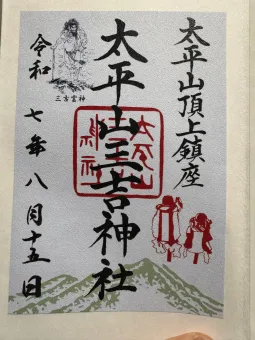 太平山頂上鎮座
太平山三吉神社
三吉霊神
令和七年八月十五日